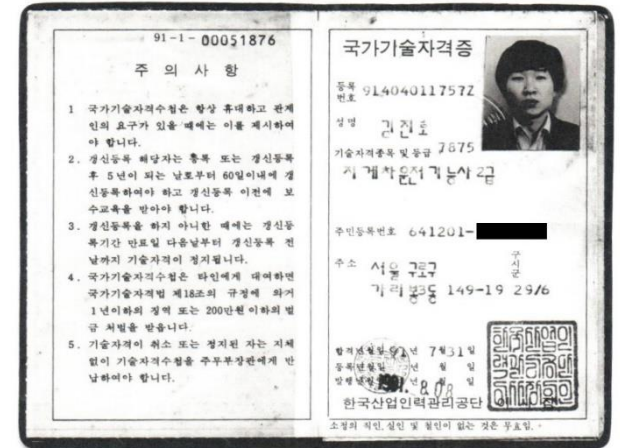 91-1- 00051876
주 의 사 항
1 국가기술자격수첩은 항상 휴대하고 관계
인의 요구가 있을 때에는 이를 제시하여
야 합니다.
2. 갱신등록 해당자는 등록 또는 갱신등록
후 5년이 되는 날로부터 60일이내에 갱
신등록하여야 하고 갱신등록 이전에 보
수교육을 받아야 합니다.
3. 갱신등록을 하지 아니한 때에는 갱신등
록기간 만료일 다음날부터 갱신등록 전
날까지 기술자격이 정지됩니다.
4. 국가기술자격수첩은 타인에게 대여하면
국가기술자격법 제18조의 규정에 의거
1년이하의 징역 또는 200만원이하의 벌
금 처벌을 받읍니다.
5. 기술자격이 취소 또는 정지된 자는 지체
없이 기술자격수첩을 주무부장관에게 반
납하여야 합니다.
국가기술자격증
등록번호 91404011757Z
성명 김진호
기술자격종목 및 등급 7875
지게차운전기능사 2급
주민등록번호 641201-
주소 서울 구로구 구시군
가리봉3동 149-19 29/6
합격년월일 91년 7월 31일
등록년월일 년 월 일
발행년월일 1991. 8. 08
한국산업인력관리공단
소정의 직인, 실인 및 철인이 없는 것은 무효임.